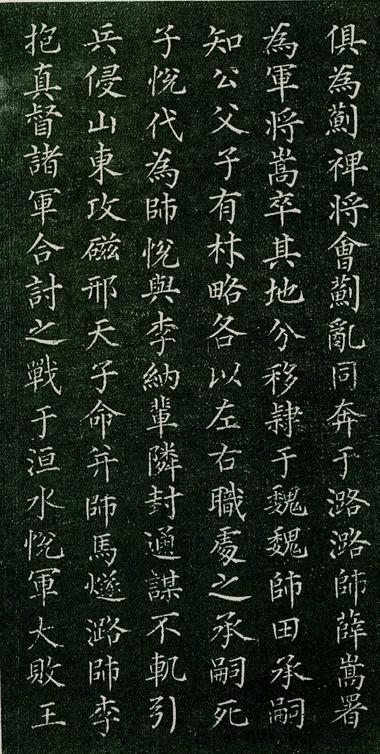 俱為薊裨將會薊亂同奔于潞潞師薛嵩署
為軍將嵩卒其地分移隸于魏魏師田承嗣
知公父子有材略各以左右職處之承嗣死
子悅代為師悅與李納輩隣封通謀不軌引
兵侵山東攻磁邢天子命并師馬燧潞師李
抱真督諸軍合討之戰于洹水悅軍大敗王